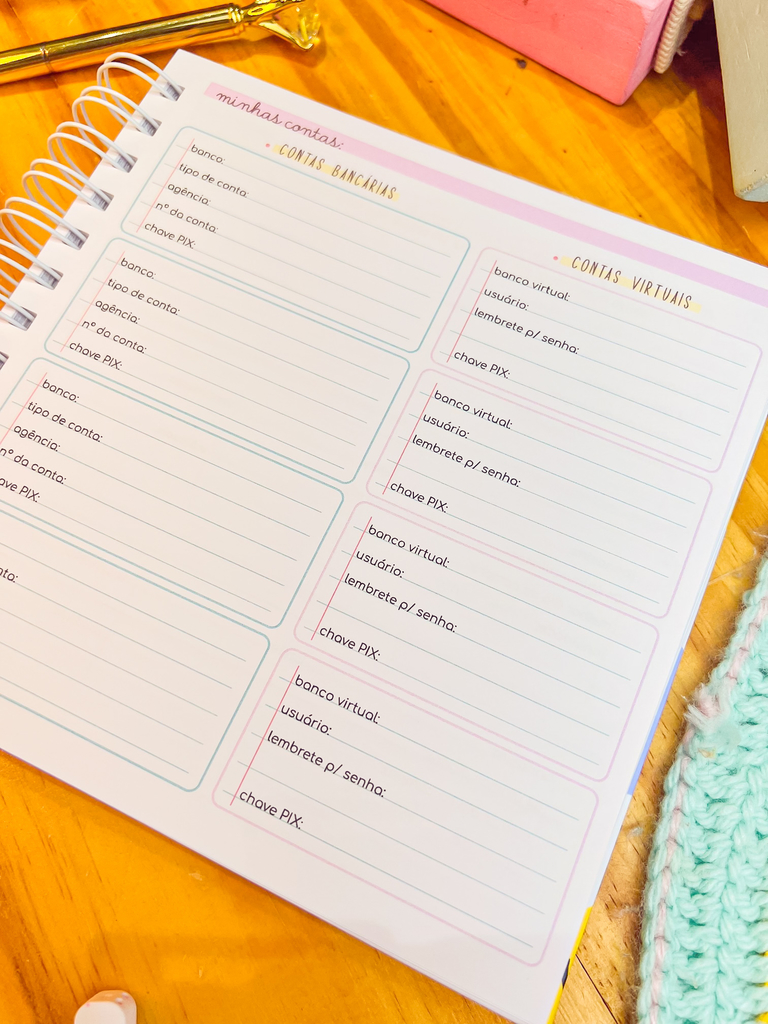 minhas contas:
CONTAS BANCÁRIAS
banco:
tipo de conta:
agência:
nº da conta:
chave PIX:
banco:
tipo de conta:
agência:
nº da conta:
chave PIX:
banco:
tipo de conta:
agência:
nº da conta:
ave PIX:
ta:
CONTAS VIRTUAIS
banco virtual:
usuário:
lembrete p/ senha:
chave PIX:
banco virtual:
usuário:
lembrete p/ senha:
chave PIX:
banco virtual:
usuário:
lembrete p/ senha:
chave PIX:
banco virtual:
usuário:
lembrete p/ senha:
chave PIX: